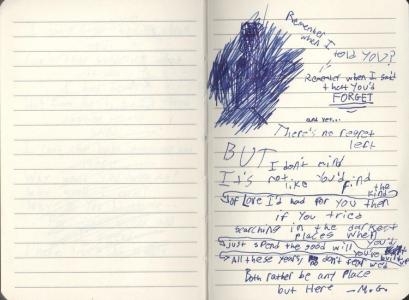 Remember
when I
told YOU?
Remember when I said
that You'd
FORGET
and yet...
There's no regret
left
BUT
I don't mind
It's not like You'd find the
kind
of Love I'd had for You then
if You tried
searching in the darkest
places when
You'd
just spend the good will You've
built up
All these years, don't feel we'd
Both rather be any place
but Here - M.G.